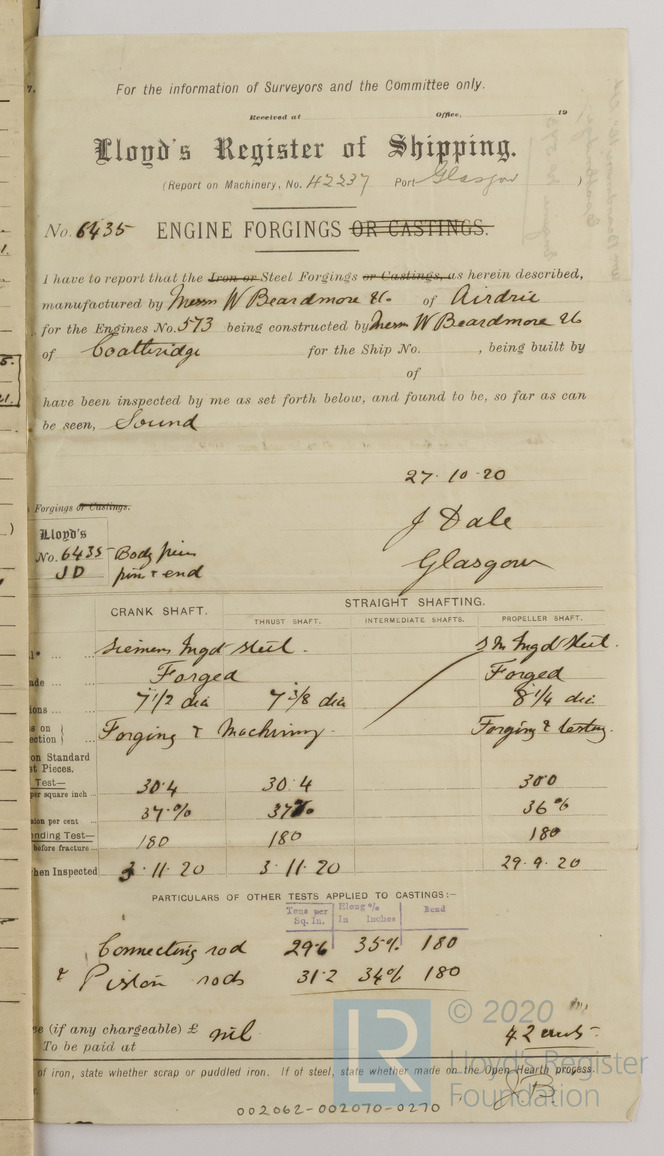 For the information of Surveyors and the Committee only.
Received at Office, 19
Lloyd's Register of Shipping.
(Report on Machinery, No. 42237 Port Glasgow )
No. 6435 ENGINE FORGINGS OR CASTINGS.
I have to report that the Iron or Steel Forgings or Castings, as herein described,
manufactured by Messrs W Beardmore &Co. of Airdrie
for the Engines No. 573 being constructed by Messrs W Beardmore &Co
of Coatbridge for the Ship No. , being built by
of
have been inspected by me as set forth below, and found to be, so far as can
be seen, Sound
27.10.20
Forgings or Castings.
J Dale
Lloyd's
No. 6435 Body piece
JD pin & end
Glasgow
CRANK SHAFT. STRAIGHT SHAFTING.
THRUST SHAFT. INTERMEDIATE SHAFTS. PROPELLER SHAFT.
Siemens Ingot Steel. S M Ingot Steel.
Forged Forged
7 1/2 dia 7 3/8 dia 8 1/4 dia
Forging & Machining. Forging & testing.
on Standard
Pieces.
Test—
per square inch 30.4 30.4 30.0
per cent 37.% 37% 36%
nding Test—
before fracture 180 180 180
hen Inspected 3.11.20 3.11.20 29.9.20
PARTICULARS OF OTHER TESTS APPLIED TO CASTINGS:—
Tons per Elong % Bend
Sq. In. In Inches
Connecting rod 29.6 35% 180
& Piston rods 31.2 34% 180
(if any chargeable) £ nil 42 cwts.
To be paid at
of iron, state whether scrap or puddled iron. If of steel, state whether made on the Open Hearth process.
JB
002062-002070-0270
LR © 2020
Lloyd's Register
Foundation